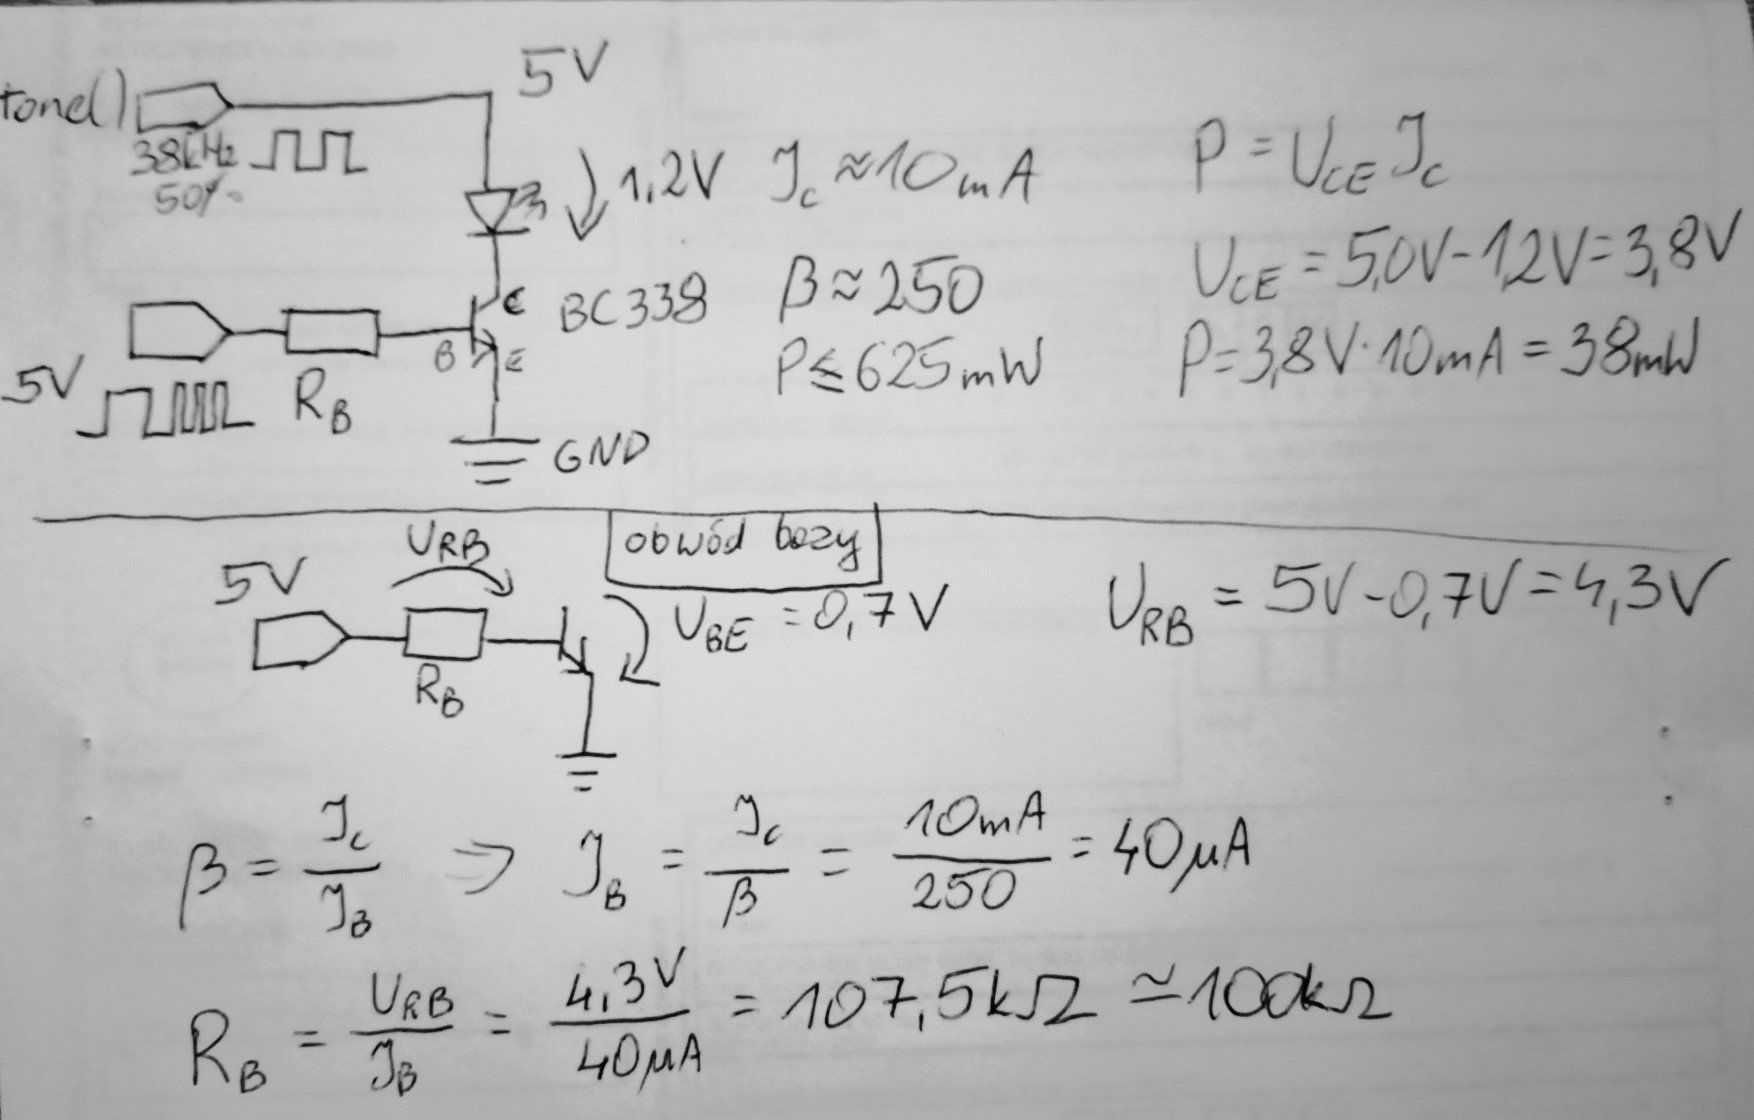 5V
tone()
38kHz
50%
1,2V
I_C ≈ 10mA
P = U_CE I_C
β ≈ 250
U_CE = 5,0V - 1,2V = 3,8V
C
BC338
B
E
P ≤ 625mW
P = 3,8V · 10mA = 38mW
5V
R_B
GND
obwód bazy
U_RB
5V
U_BE = 0,7V
U_RB = 5V - 0,7V = 4,3V
R_B
β = I_C / I_B ⇒ I_B = I_C / β = 10mA / 250 = 40μA
R_B = U_RB / I_B = 4,3V / 40μA = 107,5kΩ ≃ 100kΩ